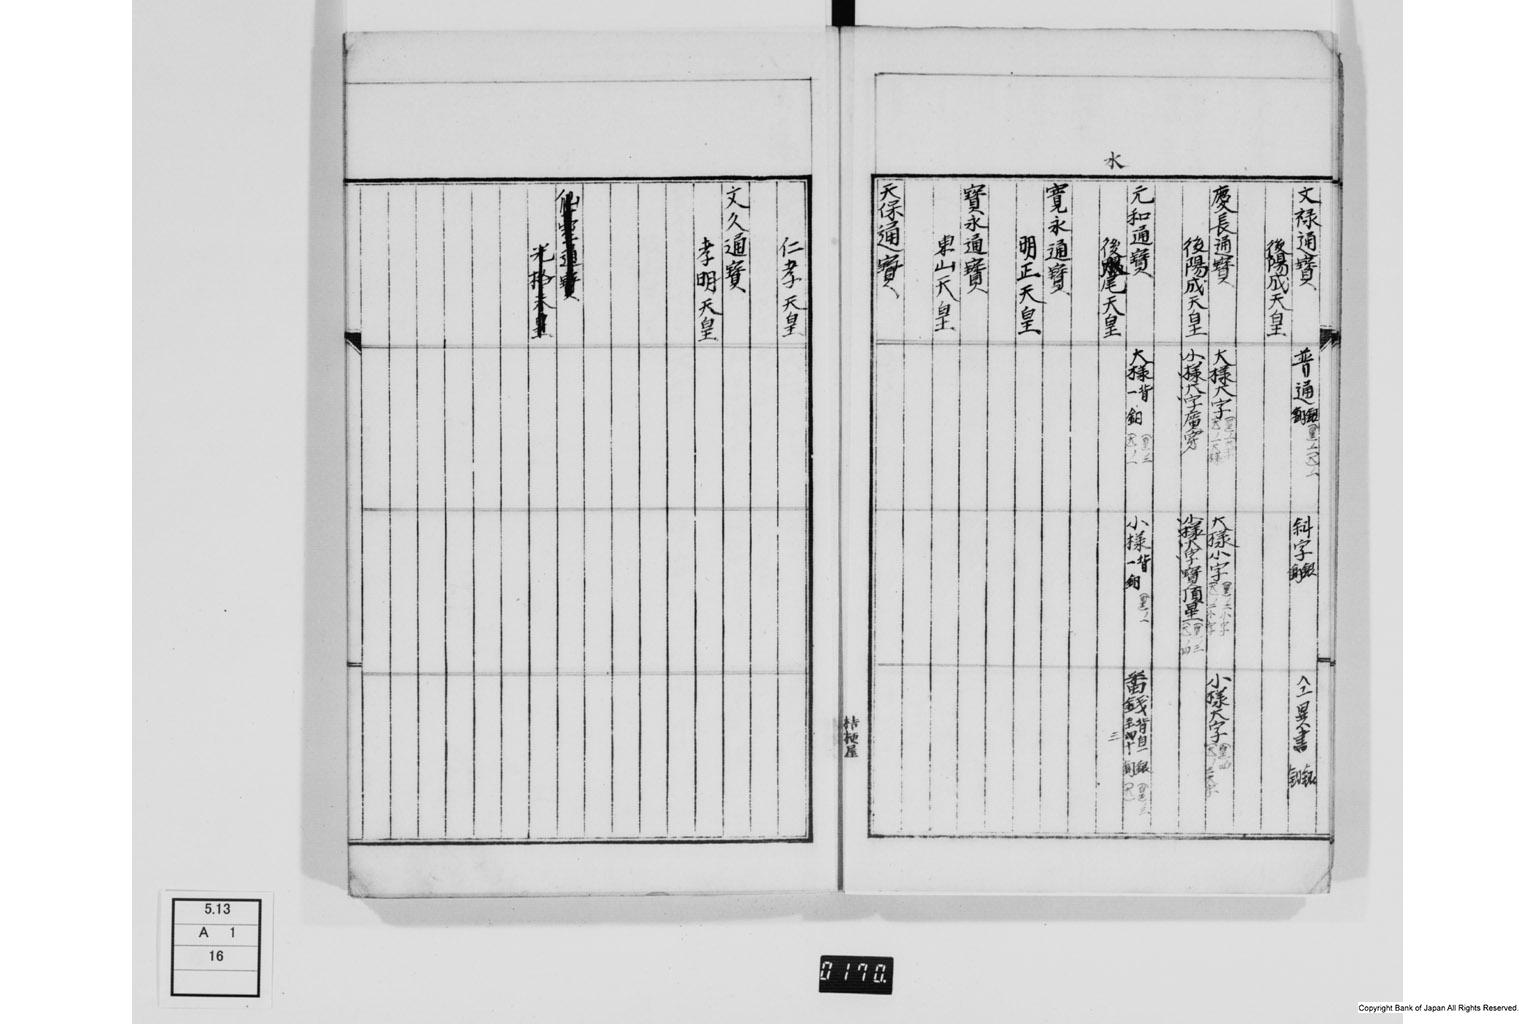 水
文禄通寳
普通
銀
銅
斜字
銀
銅
仝異書
銀
銅
後陽成天皇
慶長通寳
大様大字
大様小字
小様大字
後陽成天皇
小様大字廣穿
小様大字寳頂星
元和通寳
大様背一
小様背一
番銭背自一至四十
三
後水尾天皇
寛永通寳
明正天皇
寳永通寳
東山天皇
天保通寳
桔梗屋
仁孝天皇
文久通寳
孝明天皇
光格天皇
5.13
A 1
16
0170.
Copyright Bank of Japan All Rights Reserved.